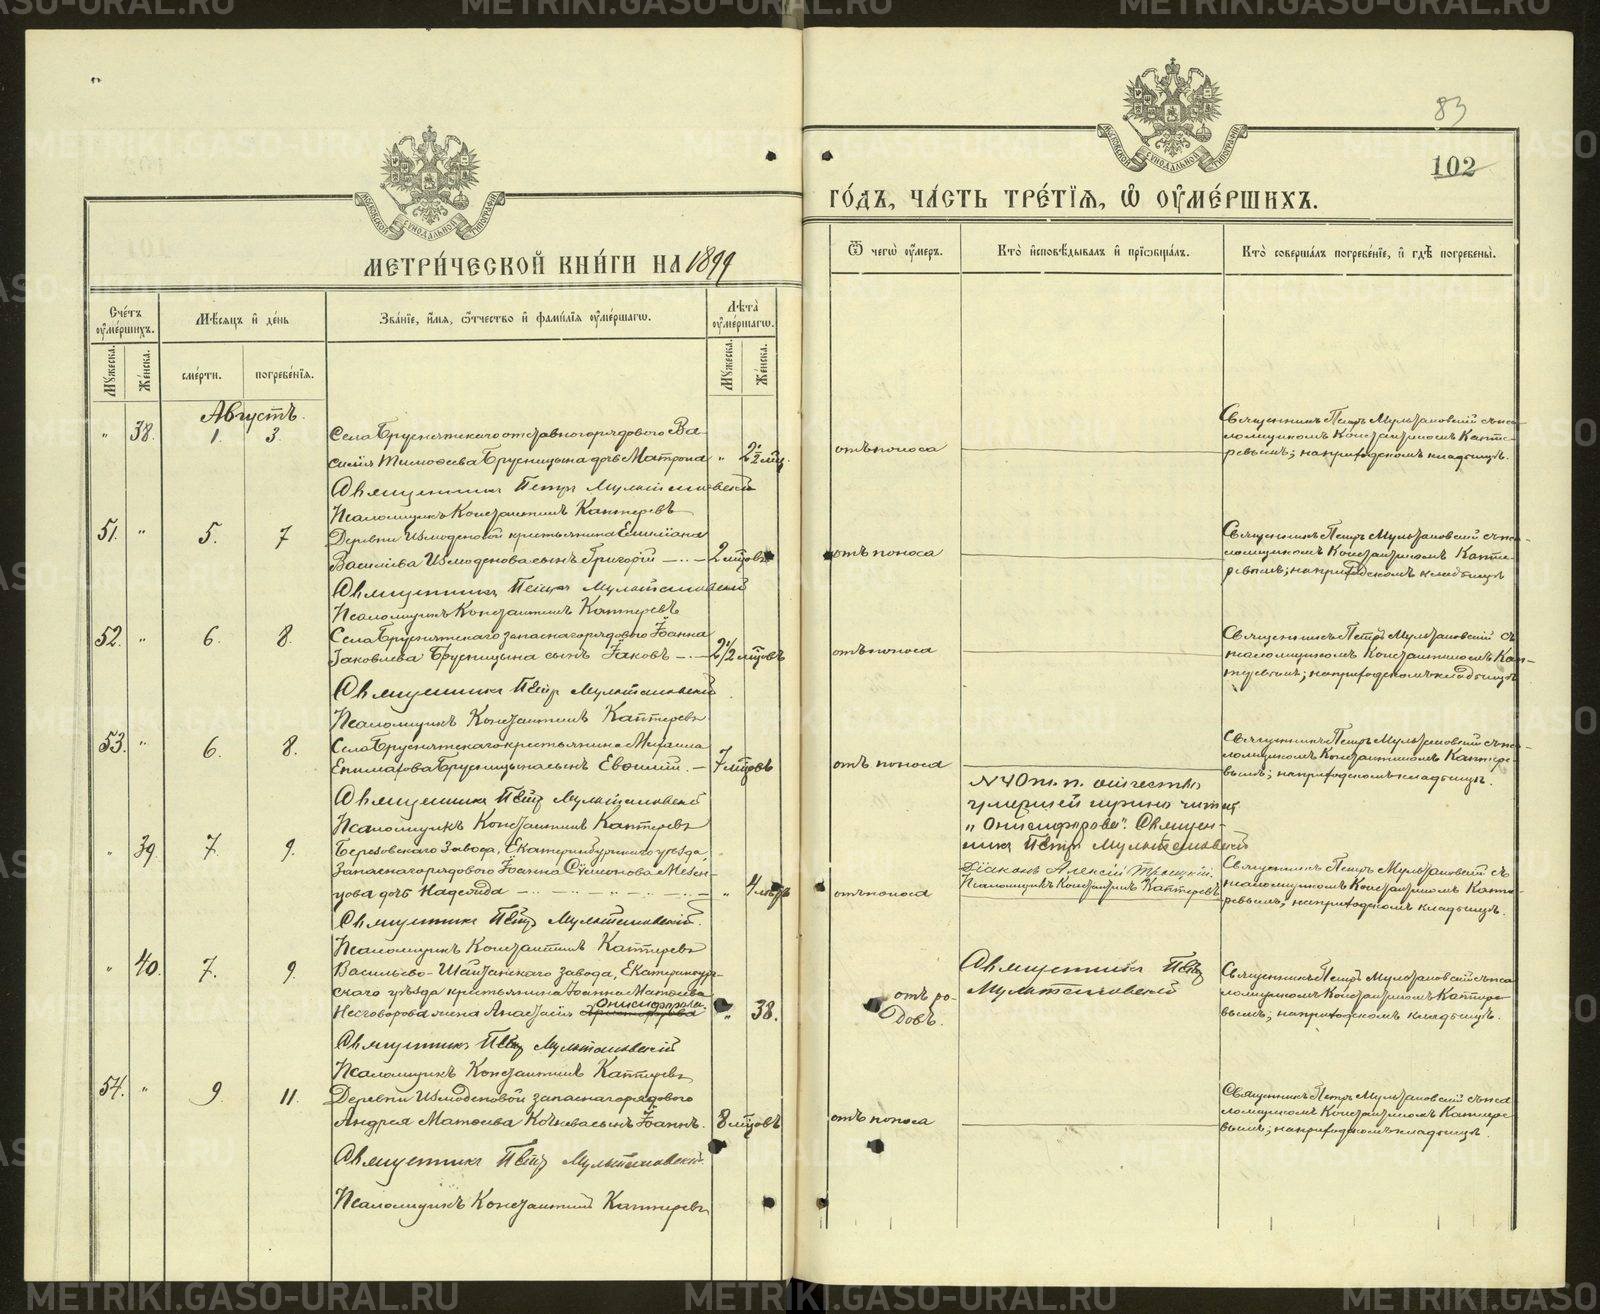 METRIKI.GASO-URAL.RU
83
102
МЕТРИ́ЧЕСКОЙ КНИ́ГИ НА 1899
ГО́ДЪ, ЧА́СТЬ ТРЕ́ТІѦ, Ѡ҆ ОУ҆МЕ́РШИХЪ.
Сче́тъ оу҆ме́ршихъ.
Мѣ́сяцъ и҆ де́нь
Зва́нїе, и҆́мѧ, ѻ҆́тчество и҆ фами́лїѧ оу҆ме́ршагѡ.
Лѣта̀ оу҆ме́ршагѡ.
Мꙋ́жеска.
Же́нска.
сме́рти.
погребе́нїѧ.
Мꙋ́жеска.
Же́нска.
Ѿ чегѡ̀ оу҆́меръ.
Кто̀ и҆сповѣ́дывалъ и҆ прїѡбща́лъ.
Кто̀ соверша́лъ погребе́нїе, и҆ гдѣ̀ погребены̀.
Августъ.
" 38. 1. 3.
Села Бруснятскаго отставного рядового Ва-
силія Тимоѳеева Брусницына дочь Матрона " 2½ мц.
отъ поноса
Священникъ Петръ Мультановскій съ пса-
ломщикомъ Константиномъ Капте-
ревымъ; на приходскомъ кладбищѣ.
Священникъ Петръ Мультановскій
Псаломщикъ Константинъ Каптеревъ
51. " 5. 7
Деревни Измоденовой крестьянина Емиліана
Василіева Измоденова сынъ Григорій 2 мцовъ
отъ поноса
Священникъ Петръ Мультановскій съ пса-
ломщикомъ Константиномъ Капте-
ревымъ; на приходскомъ кладбищѣ
Священникъ Петръ Мультановскій
Псаломщикъ Константинъ Каптеревъ
52. " 6. 8.
Села Бруснятскаго запаснаго рядового Іоанна
Іаковлева Брусницына сынъ Іаковъ 2½ мцовъ
отъ поноса
Священникъ Петръ Мультановскій съ
псаломщикомъ Константиномъ Кап-
теревымъ; на приходскомъ кладбищѣ
Священникъ Петръ Мультановскій
Псаломщикъ Константинъ Каптеревъ
53. " 6. 8.
Села Бруснятскаго крестьянина Михаила
Епимахова Брусницына сынъ Евѳимій. 7 мцовъ
отъ поноса
Священникъ Петръ Мультановскій съ пса-
ломщикомъ Константиномъ Каптере-
вымъ; на приходскомъ кладбищѣ.
Священникъ Петръ Мультановскій
Псаломщикъ Константинъ Каптеревъ
N 40 м. п. отчество
умершей нужно читать
"Онисифорова". Священ-
никъ Петръ Мультановскій
Діаконъ Алексій Троицкій.
Псаломщикъ Константинъ Каптеревъ
" 39. 7. 9.
Березовскаго Завода, Екатеринбургскаго уѣзда,
запаснаго рядового Іоанна Сѵмеонова Мезен-
цова дочь Надежда " 4 мцъ
отъ поноса
Священникъ Петръ Мультановскій съ
псаломщикомъ Константиномъ Капте-
ревымъ; на приходскомъ кладбищѣ.
Священникъ Петръ Мультановскій.
Псаломщикъ Константинъ Каптеревъ
" 40. 7. 9.
Васильево-Шайтанскаго завода, Екатеринбург-
скаго уѣзда крестьянина Іоанна Матѳеева
Онисифорова
Несговорова жена Анастасія " 38.
отъ ро-
довъ.
Священникъ Петръ
Мультановскій
Священникъ Петръ Мультановскій съ пса-
ломщикомъ Константиномъ Каптере-
вымъ; на приходскомъ кладбищѣ.
Священникъ Петръ Мультановскій
Псаломщикъ Константинъ Каптеревъ
54. " 9. 11.
Деревни Измоденовой запаснаго рядового
Андрея Матѳеева сынъ Іоаннъ. 8 мцовъ
отъ поноса
Священникъ Петръ Мультановскій съ пса-
ломщикомъ Константиномъ Каптере-
вымъ; на приходскомъ кладбищѣ.
Священникъ Петръ Мультановскій.
Псаломщикъ Константинъ Каптеревъ